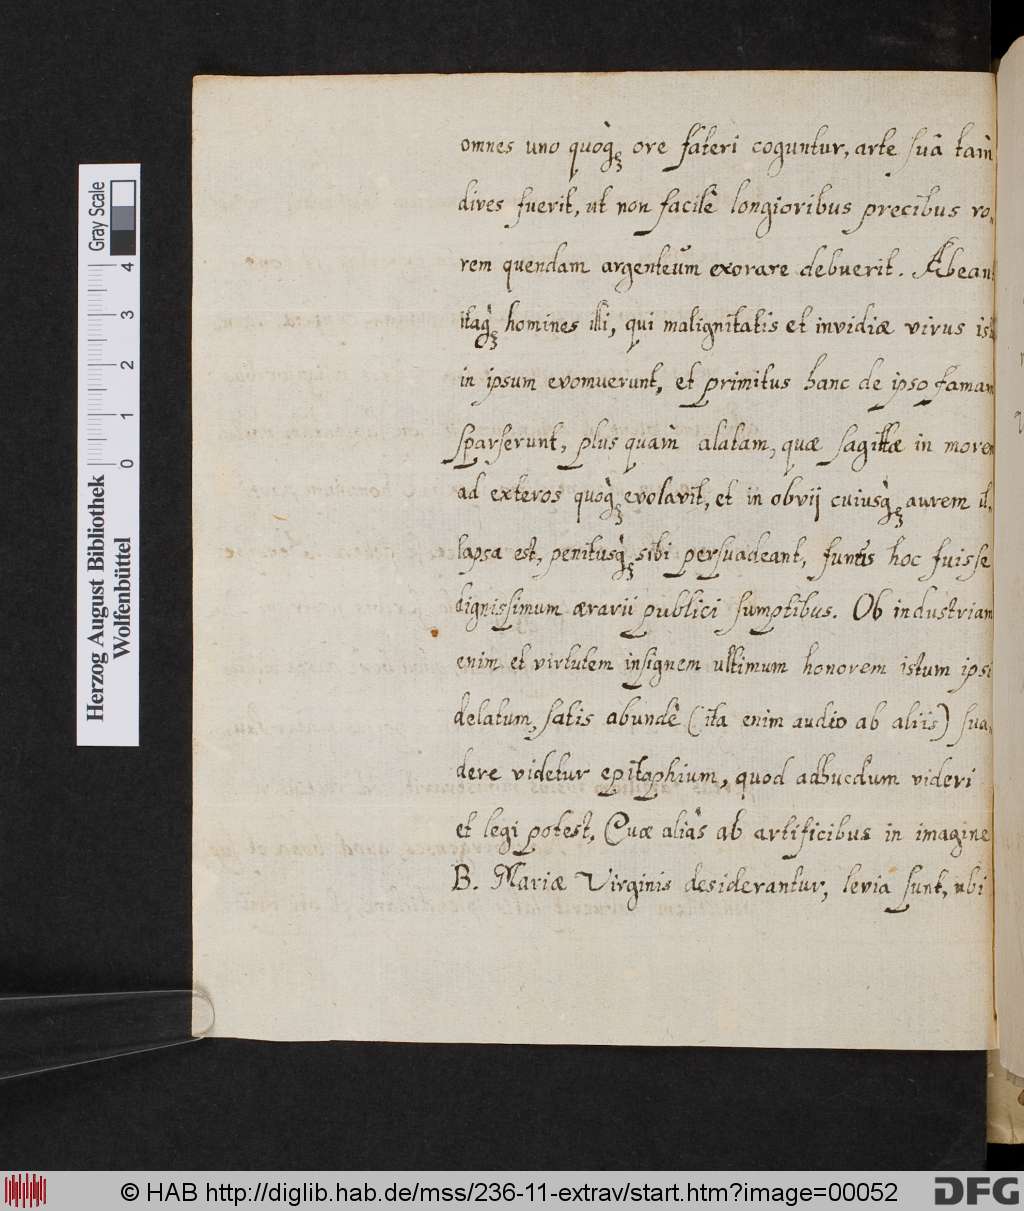 omnes uno quoq̀ꝫ ore fateri coguntur, arte suâ tam̀
dives fuerit, ut non facilè longioribus precibus ro-
rem quendam argenteum exorare debuerit. Abeant
itaq̀ꝫ homines illi, qui malignitatis et invidiæ virus
in ipsum evomuerunt, et primitus hanc de ipso famam
sparserunt, plus quam̀ alatam, quæ sagittæ in morem
ad exteros quoq̀ꝫ evolavit, et in obvij cuiusq̀ꝫ aurem il-
lapsa est, penitusq̀ꝫ sibi persuadeant, hoc fuisse
dignissimum ærarii publici sumptibus. Ob industriam
enim et virtutem insignem ultimum honorem istum ipsi
delatum, satis abundè (ita enim audio ab aliis) sua-
dere videtur epitaphium, quod adhucdum videri
et legi potest. Quæ aliàs ab artificibus in imagine
B. Mariæ Virginis desiderantur, levia sunt, ubi
Herzog August Bibliothek
Wolfenbüttel
Gray Scale
0 1 2 3 4
© HAB http://diglib.hab.de/mss/236-11-extrav/start.htm?image=00052
DFG